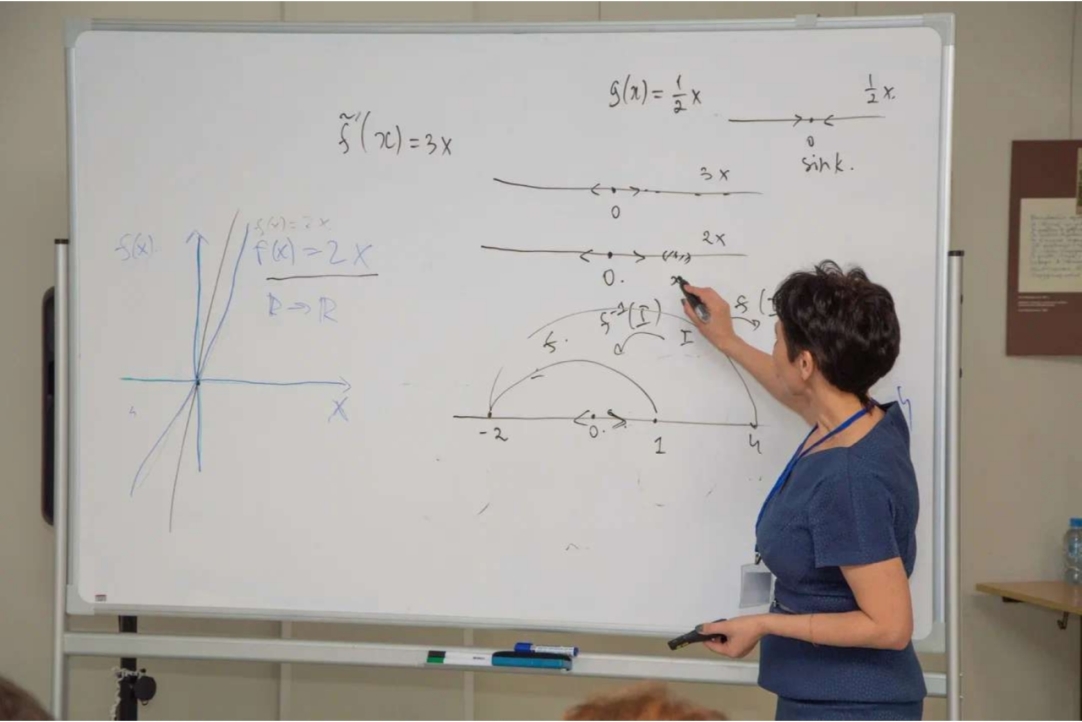 g(x) = 1/2 x
1/2 x
0
sink.
f̃'(x) = 3x
3x
0
2x
0.
x
f(x)
f(x) = 2x
f(x) = 2x
ℝ → ℝ
X
f⁻¹(I)
I
f(I
f.
-2
0.
1
4